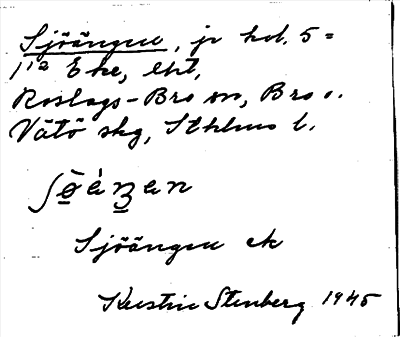 Sjöängen, jr kol. 5=
1¹² Eke, ent,
Roslags-Bro sn, Bro o.
Vätö skg, Sthlms l.
ʃö̀ èŋen
Sjöängen ek
Kerstin Stenberg 1945